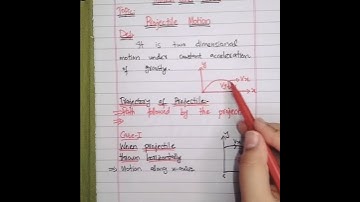 Topic
Projectile Motion
Def:
It is two dimensional
motion under constant acceleration
of gravity.
y
Vx
x
Trajectory of Projectile:-
⇒ Path followed by the projectile
⇒
Case-I
When projectile
thrown horizontally
⇒ Motion along x-axis
y